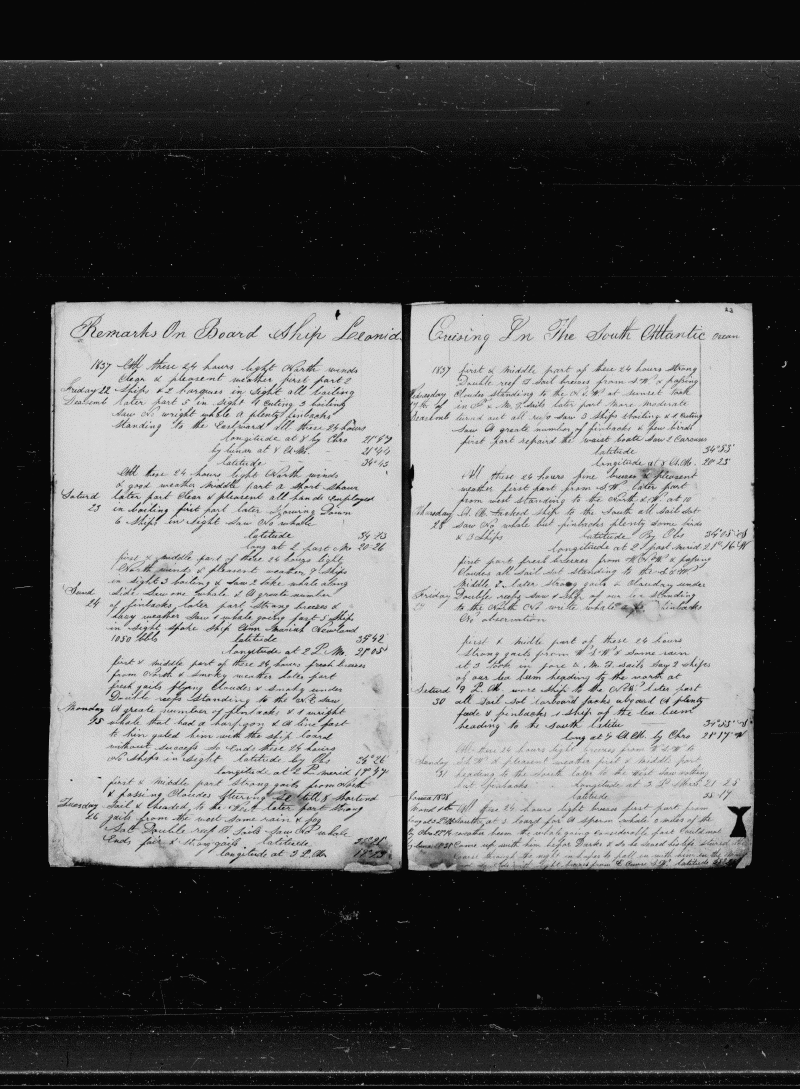 Remarks On Board Ship Leonid
1837 All these 24 hours light North winds
Clear & pleasent weather first part 2
Friday 22 Ships & 2 barques in sight all boiling
Decemb later part 5 in sight 1 Cuting 3 boiling
Saw No wright whale a plenty finbacks
Standing to the Eastward all these 24 hours
longitude at 4 by Chro
by luner at 4 21°44
latitude 34°43
All these 24 hours light North winds
& good weather Middle part a Short Shour
Saturd later part Clear & pleasent all hands employed
23 in boiling first part later Stowing Down
6 Ships in Sight Saw No whale
latitude 34 23
long at 2 past M 20-26
first & middle part of these 24 hours light
North winds & pleasent weather 7 Ships
in sight 3 boiling & Saw 2 take whale along
Sund side Saw one whale & A greate number
24 of finbacks later part Strong breeses &
hazy weather Saw 1 whale going past 5 Ships
in Sight Spoke Ship Ann Mariah Newland
1050 bbls latitude 34°42
longitude at 2 P.M. 21°05
first & middle part of these 24 hours fresh breeses
from North & Smoky weather later part
fresh gails flying Clouds & Smoky under
Double reefs Standing to the N.E. Saw
Monday A greate number of finbacks & 1 wright
25 whale that had a harpoon & A line fast
to him guled him with the Ship loard
without success So Ends these 24 hours
No Ships in Sight latitude by Obs 36°26
longitude at 2 P merid 19°47
first & middle part Strong gails from North
& passing Clouds Stering till 8 Shortend
Tuesday Sail & headed to the later part Strong
26 gails from the west some rain & fog
Set Double reef T Sails Saw No whale
Ends fair & Strong gails latitude
longitude at 3 P.M.
Cruising In The South Atlantic Ocean
1837 first & Middle part of these 24 hours Strong
Double reef T Sail breeses from S.W. & passing
Wednesday Cloudes Standing to the N.W. at sunset took
27th of in F & M. T. Sails later part More moderate
Decemb turnd out all reefs Saw 3 Ships 1 boiling & 1 Cuting
Saw A greate number of finbacks & few birds
first part repaird the waist boate Saw 2 Carcuses
latitude 34°53
longitude at 4 20°25
All these 24 hours fine breeses & pleasent
weather first part from S.W. later part
from west Standing to the North & W. at 10
Thursday A.M. tacked ship to the South all Sail Set
28 Saw No whale but finbacks plenty some birds
& 3 Ships latitude By Obs 34°05 S
longitude at 2 past merid 21°16 W
first part fresh breeses from & passing
Cloudes all Sail Set Standing to the S.W.
Middle & later Strong gails & Cloudy under
Friday Double reefs Saw 1 Ship of our lee Standing
29 to the North No write whale finbacks
No observation
first & midle part of these 24 hours
Strong gails from W.S.W. & some rain
at 3 took in fore & M. T. sails Say 2 Ships
of our lea beem heading to the north at
Saturd 9 P.M. wore Ship to the later part
30 all Sail Set Larboard tacks aboard A plenty
feede & finbacks 1 Ship of the lea beem
heading to the South latitu 34°53 S
long at 4 by Chro 21°17 W
All these 24 hours light breeses from to
Sunday & pleasent weather first & middle part
31 heading to the South later to the west Saw nothing
but finbacks longitude at 3 P. Merd 21 25
latitude 35 17
All these 24 hours light breeses first part from
at 5 loard for A Sperm whale 2 miles of the
weather beem the whale going considerable fast Could not
Came up with him befor Dark & So he saved his life
through the night in hopes to fall in with him in the
light breeses from latitude